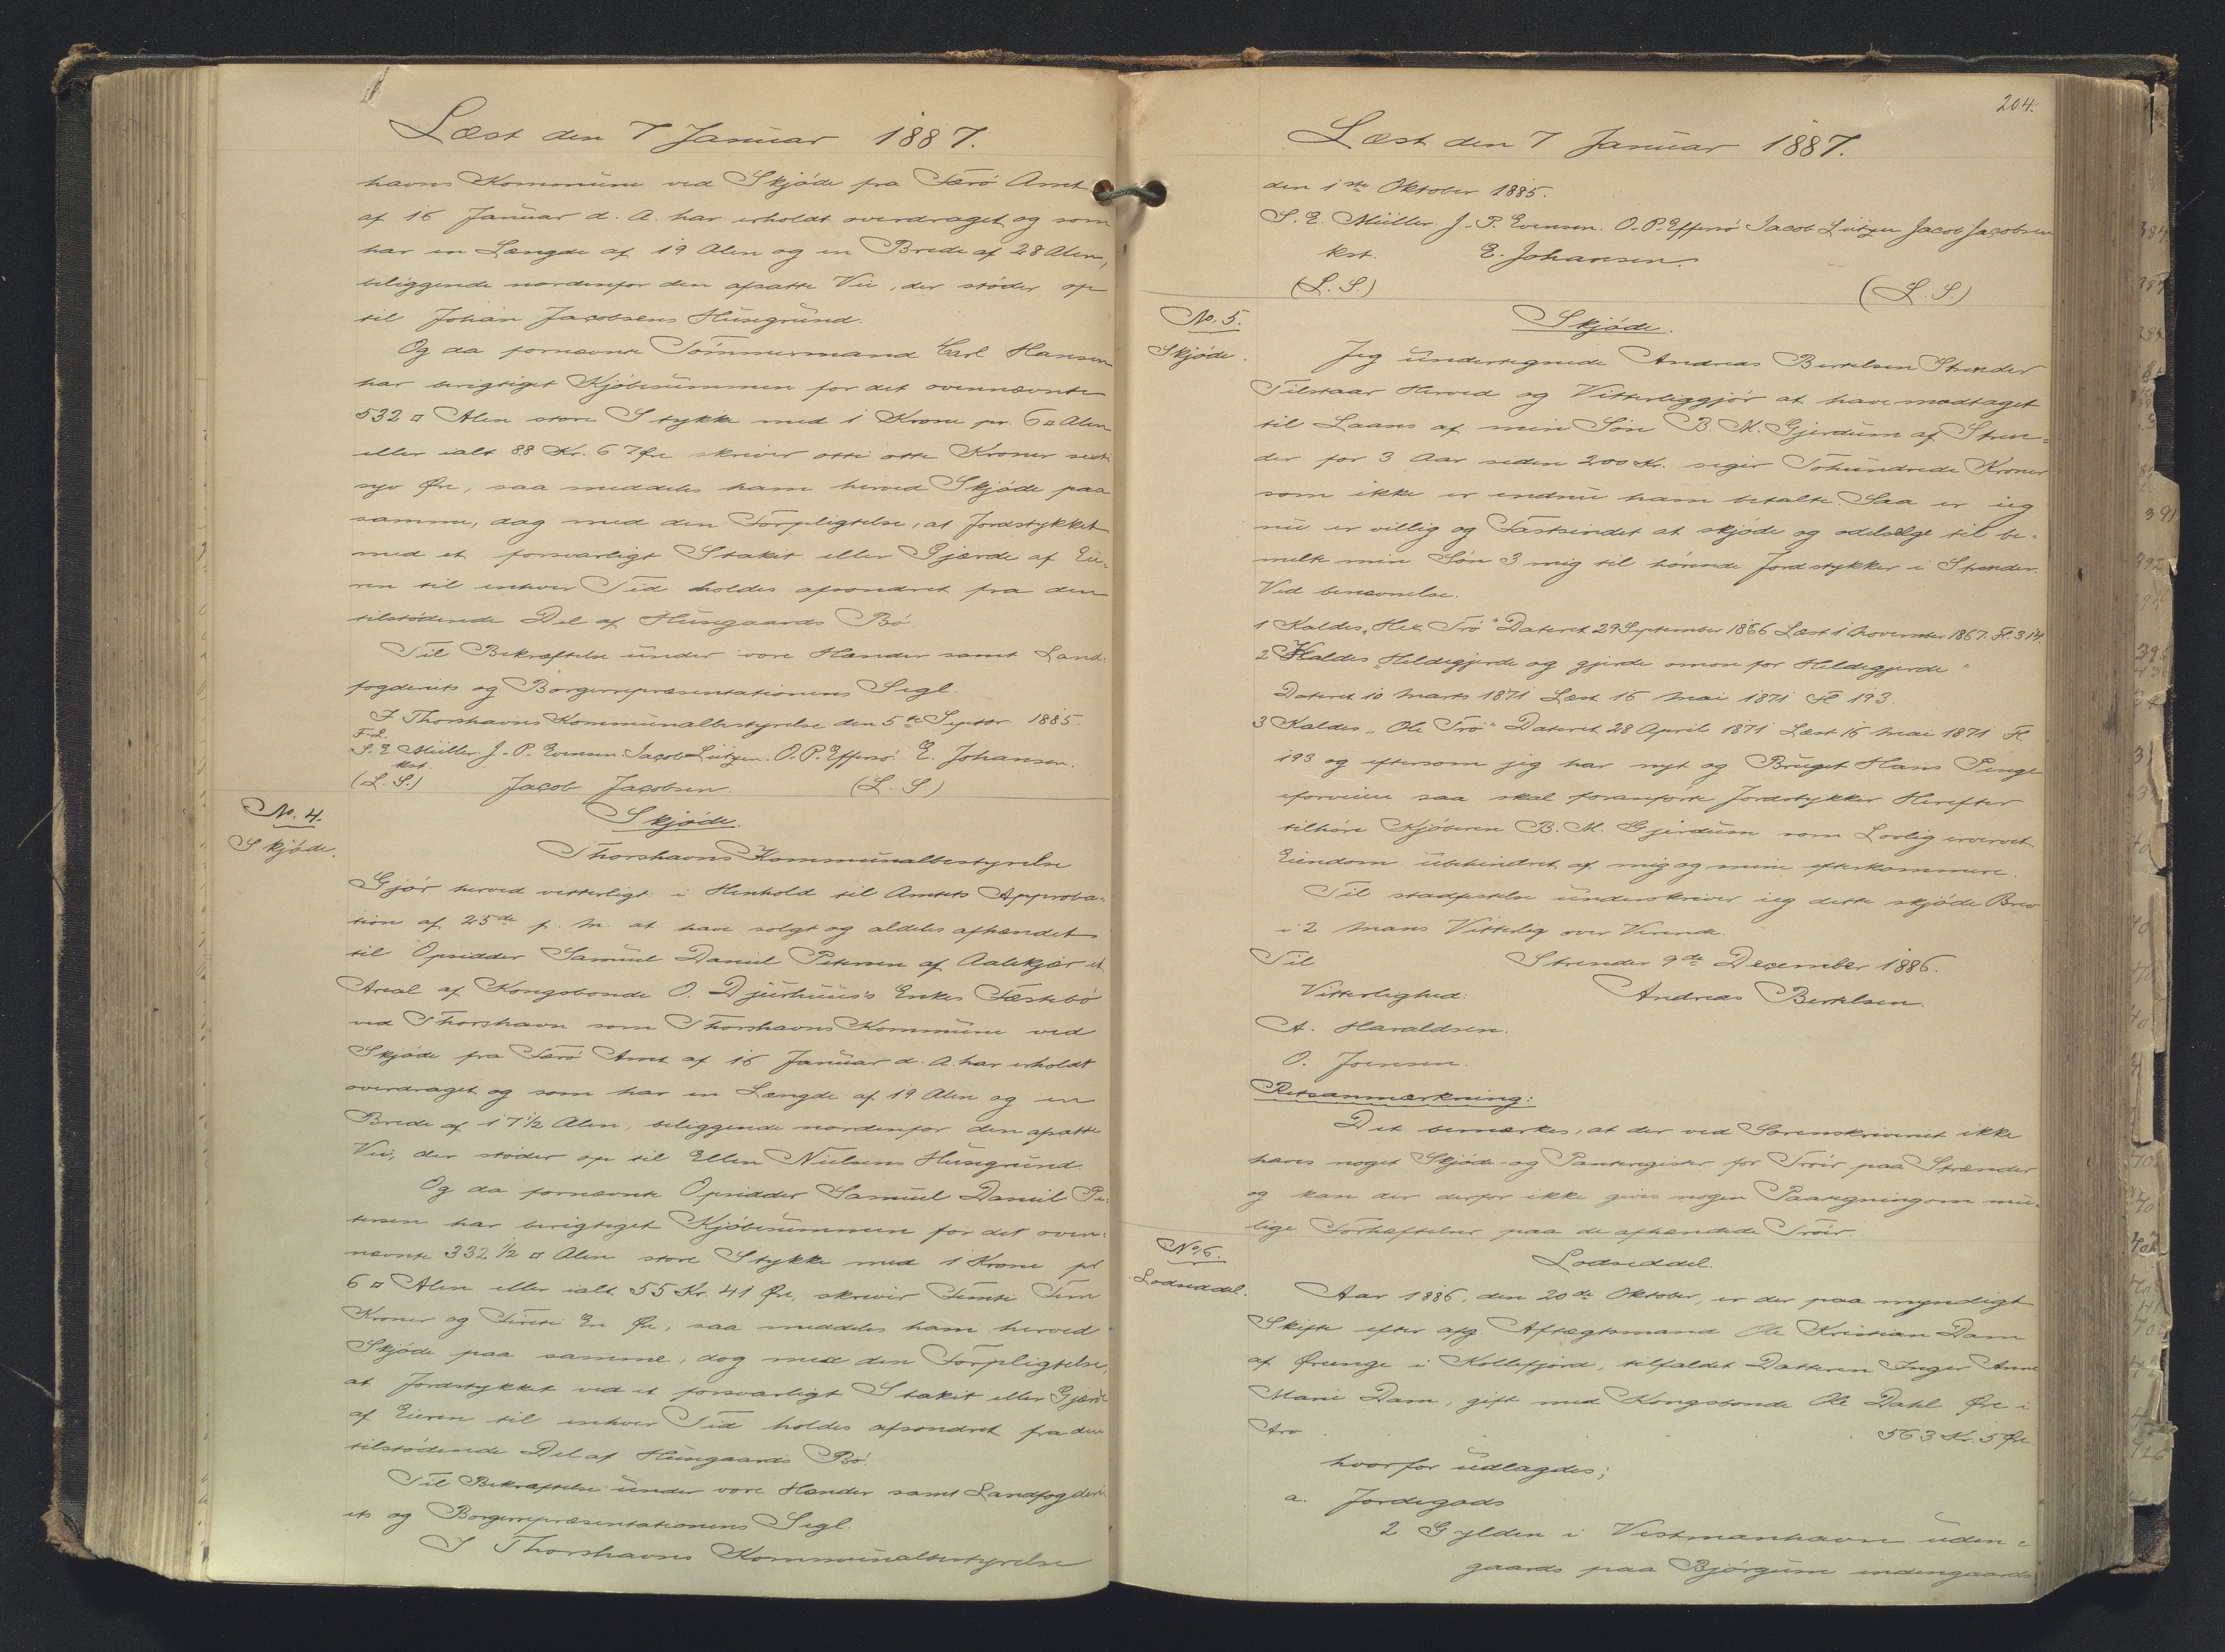 Læst den 7 Januar 1887.
havns Kommune ved Skjøde fra Færø Amt
af 16 Januar d. A. har erholdt overdraget og som
har en Længde af 19 Alen og en Brede af 28 Alen,
beliggende nordenfor den afsatte Vei, der støder op
til Johan Jacobsens Husegrund.
Og da fornævnte Tømmermand Carl Hansen
har berigtiget Kjøbesummen for det ovennævnte
532 □ Alen store Stykke med 1 Krone pr. 6 □ Alen
eller ialt 88 Kr. 67 Øre skriver otti otte Kroner sexti
syv Øre, saa meddeles ham herved Skjøde paa
samme, dog med den Forpligtelse, at Jordstykket
med et forsvarligt Stakit eller Gjærde af Eie-
ren til enhver Tid holdes afsondret fra den
tilstødende Del af Husegaards Bø.
Til Bekræftelse under vore Hænder samt Land-
fogderiets og Borgerrepræsentationens Segl.
I Thorshavns Kommunalbestyrelse den 5te Septbr. 1885.
F. L.
S. E. Müller. J. P. Evensen. Jacob Lützen. O. P. Effersø. E. Johansen.
kst.
(L. S.) Jacob Jacobsen. (L. S.)
No. 4.
Skjøde.
Skjøde.
Thorshavns Kommunalbestyrelse
Gjør herved vitterligt: i Henhold til Amtets Approba-
tion af 25de f. M. at have solgt og aldeles afhændet
til Opsidder Samuel Daniel Petersen af Aalekjær et
Areal af Kongsbonde O. Djurhuus's Enkes Fæstebø
ved Thorshavn som Thorshavns Kommune ved
Skjøde fra Færø Amt af 16 Januar d. A. har erholdt
overdraget og som har en Længde af 19 Alen og en
Brede af 17 1/2 Alen, beliggende nordenfor den afsatte
Vei, der støder op til Ellen Nielsens Husegrund.
Og da fornævnte Opsidder Samuel Daniel Pe-
tersen har berigtiget Kjøbesummen for det oven-
nævnte 332 1/2 □ Alen store Stykke med 1 Krone pr
6 □ Alen eller ialt 55 Kr. 41 Øre, skriver Femti Fem
Kroner og Fireti En Øre, saa meddeles ham herved
Skjøde paa samme, dog med den Forpligtelse,
at Jordstykket ved et forsvarligt Stakit eller Gjærde
af Eieren til enhver Tid holdes afsondret fra den
tilstødende Del af Husegaards Bø.
Til Bekræftelse under vore Hænder samt Landfogderi-
ets og Borgerrepræsentationens Segl.
I Thorshavns Kommunalbestyrelse
204.
Læst den 7 Januar 1887.
den 1ste Oktober 1885.
S. E. Müller. J. P. Evensen. O. P. Effersø Jacob Lützen Jacob Jacobsen
kst. E. Johansen.
(L. S.) (L. S.)
No. 5.
Skjøde.
Skjøde.
Jeg undertegnede Andreas Bertelsen Strender
Tilstaar Herved og Vitterliggjør at have modtaget
til Laans af min Søn B. M. Gjerdum af Stren-
der for 3 Aar siden 200 Kr. siger Tohundrede Kroner
som ikke er endnu ham betalte. Saa er ieg
nu er villig og Fastsindet at skjøde og odelsælge til be-
melte min Søn 3 mig til hørende Jordstykker i Strender.
Ved benævnelse.
1 Kaldes "Trø" Dateret 29 September 1866 Læst 1 November 1867. Fl. 314.
2 Kaldes "Heldegjerde og gjerde oman for Heldegjerde"
Dateret 10 Marts 1871 Læst 15 Mai 1871 Fl 193.
3 Kaldes "Ole Trø" Dateret 28 April 1871 Læst 15 Mai 1871 Fl.
193 og eftersom jeg har nyt og Bruget Hans Penge
saa skal foranførte Jordstykker Herefter
tilhøre Kjøberen B. M. Gjerdum som Lovlig ervervet
Eiendom ubehindret af mig og mine efterkommere.
Til stadfestelse underskriver ieg dette skjøde Brev
i 2 Mans Vitterlig over Verende.
Til Strender 9de December 1886.
Vitterlighed: Andreas Bertelsen.
A. Haraldsen.
O. Joensen.
Retsanmærkning:
Det bemærkes, at der ved Sorenskriveriet ikke
haves noget Skjøde- og Panteregister for Trøir paa Strænder
og kan der derfor ikke gives nogen Paategning om mu-
lige Forhæftelser paa de afhændede Trøir.
No. 6.
Lodseddel.
Lodseddel.
Aar 1886, den 20de Oktober, er der paa myndigt
Skifte efter afg. Aftægtsmand Ole Kristian Dam
af Ørenge i Kollefjord, tilfaldet Datteren Inger Anne
Marie Dam, gift med Kongsbonde Ole Dahl Øre i
Arv 563 Kr. 5 Øre
hvorfor udlagdes;
a. Jordegods
2 Gylden i Vestmanhavn uden-
gaards paa Bjørgum indengaards